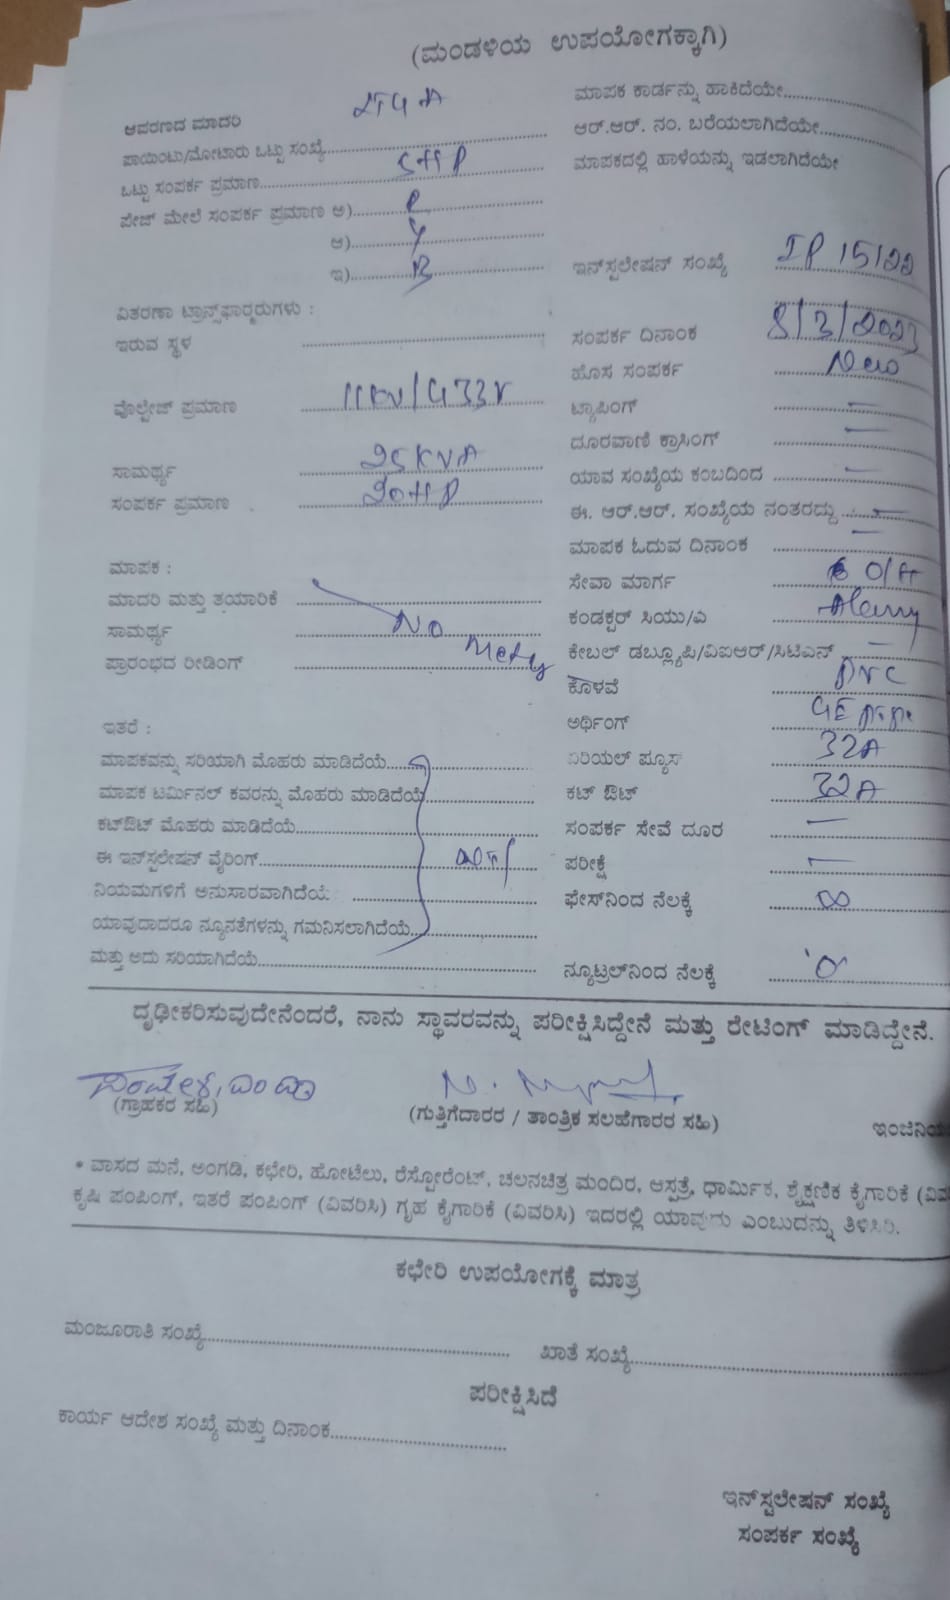 (ಮಂಡಳಿಯ ಉಪಯೋಗಕ್ಕಾಗಿ)
ಆವರಣದ ಮಾದರಿ
ಪಾಯಿಂಟು/ಮೋಟಾರು ಒಟ್ಟು ಸಂಖ್ಯೆ
ಒಟ್ಟು ಸಂಪರ್ಕ ಪ್ರಮಾಣ 5HP
ಪೇಜ್ ಮೇಲೆ ಸಂಪರ್ಕ ಪ್ರಮಾಣ ಅ) R
ಆ) Y
ಇ) B
ವಿತರಣಾ ಟ್ರಾನ್ಸ್‌ಫಾರ್ಮರುಗಳು :
ಇರುವ ಸ್ಥಳ
ವೊಲ್ಟೇಜ್ ಪ್ರಮಾಣ 11KV/433V
ಸಾಮರ್ಥ್ಯ 25KVA
ಸಂಪರ್ಕ ಪ್ರಮಾಣ 20HP
ಮಾಪಕ :
ಮಾದರಿ ಮತ್ತು ತಯಾರಿಕೆ
ಸಾಮರ್ಥ್ಯ No
ಪ್ರಾರಂಭದ ರೀಡಿಂಗ್ Meter
ಇತರೆ :
ಮಾಪಕವನ್ನು ಸರಿಯಾಗಿ ಮೊಹರು ಮಾಡಿದೆಯೆ
ಮಾಪಕ ಟರ್ಮಿನಲ್ ಕವರನ್ನು ಮೊಹರು ಮಾಡಿದೆಯೆ
ಕಟ್‌ಔಟ್ ಮೊಹರು ಮಾಡಿದೆಯೆ
ಈ ಇನ್‌ಸ್ಟಲೇಷನ್ ವೈರಿಂಗ್
ನಿಯಮಗಳಿಗೆ ಅನುಸಾರವಾಗಿದೆಯೆ
ಯಾವುದಾದರೂ ನ್ಯೂನತೆಗಳನ್ನು ಗಮನಿಸಲಾಗಿದೆಯೆ
ಮತ್ತು ಅದು ಸರಿಯಾಗಿದೆಯೆ
ಮಾಪಕ ಕಾರ್ಡನ್ನು ಹಾಕಿದೆಯೇ
ಆರ್.ಆರ್. ನಂ. ಬರೆಯಲಾಗಿದೆಯೇ
ಮಾಪಕದಲ್ಲಿ ಹಾಳೆಯನ್ನು ಇಡಲಾಗಿದೆಯೇ
ಇನ್‌ಸ್ಟಲೇಷನ್ ಸಂಖ್ಯೆ IP 15122
ಸಂಪರ್ಕ ದಿನಾಂಕ 8/3/2023
ಹೊಸ ಸಂಪರ್ಕ New
ಟ್ಯಾಪಿಂಗ್ —
ದೂರವಾಣಿ ಕ್ರಾಸಿಂಗ್ —
ಯಾವ ಸಂಖ್ಯೆಯ ಕಂಬದಿಂದ —
ಈ. ಆರ್.ಆರ್. ಸಂಖ್ಯೆಯ ನಂತರದ್ದು —
ಮಾಪಕ ಓದುವ ದಿನಾಂಕ —
ಸೇವಾ ಮಾರ್ಗ O/H
ಕಂಡಕ್ಟರ್ ಸಿಯು/ಎ
ಕೇಬಲ್ ಡಬ್ಲ್ಯೂಪಿ/ವಿಐಆರ್/ಸಿಟಿಎಸ್ —
ಕೊಳವೆ PVC
ಅರ್ಥಿಂಗ್
ಏರಿಯಲ್ ಪ್ಯೂಸ್ 32A
ಕಟ್ ಔಟ್ 32A
ಸಂಪರ್ಕ ಸೇವೆ ದೂರ —
ಪರೀಕ್ಷೆ —
ಫೇಸ್‌ನಿಂದ ನೆಲಕ್ಕೆ ∞
ನ್ಯೂಟ್ರಲ್‌ನಿಂದ ನೆಲಕ್ಕೆ '0'
ದೃಢೀಕರಿಸುವುದೇನೆಂದರೆ, ನಾನು ಸ್ಥಾವರವನ್ನು ಪರೀಕ್ಷಿಸಿದ್ದೇನೆ ಮತ್ತು ರೇಟಿಂಗ್ ಮಾಡಿದ್ದೇನೆ.
(ಗ್ರಾಹಕರ ಸಹಿ)
(ಗುತ್ತಿಗೆದಾರರ / ತಾಂತ್ರಿಕ ಸಲಹೆಗಾರರ ಸಹಿ)
• ವಾಸದ ಮನೆ, ಅಂಗಡಿ, ಕಛೇರಿ, ಹೋಟೆಲು, ರೆಸ್ಟೋರೆಂಟ್, ಚಲನಚಿತ್ರ ಮಂದಿರ, ಆಸ್ಪತ್ರೆ, ಧಾರ್ಮಿಕ, ಶೈಕ್ಷಣಿಕ ಕೈಗಾರಿಕೆ
ಕೃಷಿ ಪಂಪಿಂಗ್, ಇತರೆ ಪಂಪಿಂಗ್ (ವಿವರಿಸಿ) ಗೃಹ ಕೈಗಾರಿಕೆ (ವಿವರಿಸಿ) ಇದರಲ್ಲಿ ಯಾವುದು ಎಂಬುದನ್ನು ತಿಳಿಸಿರಿ.
ಕಛೇರಿ ಉಪಯೋಗಕ್ಕೆ ಮಾತ್ರ
ಮಂಜೂರಾತಿ ಸಂಖ್ಯೆ ಖಾತೆ ಸಂಖ್ಯೆ
ಪರೀಕ್ಷಿಸಿದೆ
ಕಾರ್ಯ ಆದೇಶ ಸಂಖ್ಯೆ ಮತ್ತು ದಿನಾಂಕ
ಇನ್‌ಸ್ಟಲೇಷನ್ ಸಂಖ್ಯೆ
ಸಂಪರ್ಕ ಸಂಖ್ಯೆ